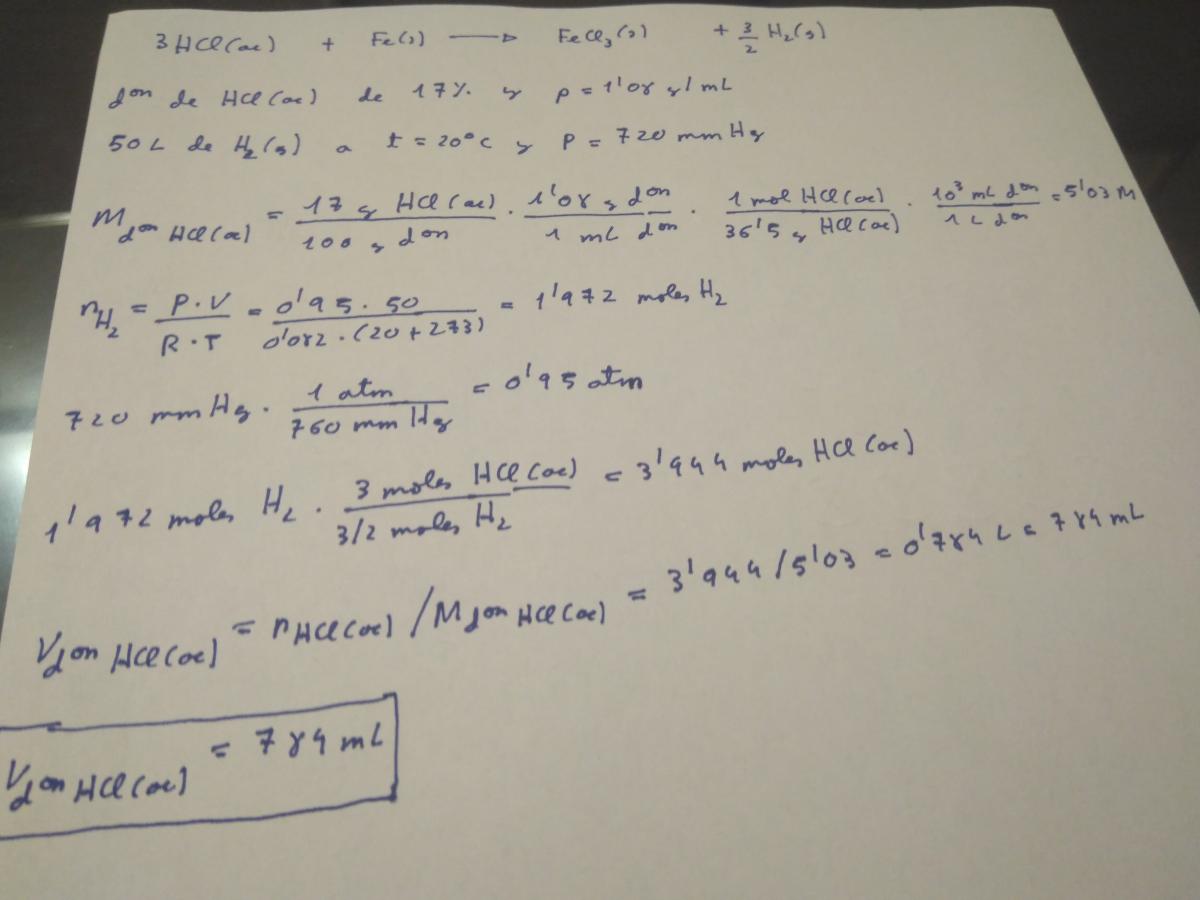 3 HCl(ac) + Fe(s) → FeCl₃(s) + 3/2 H₂(g)
dᵒⁿ de HCl(ac) de 17% y ρ = 1'08 g/mL
50 L de H₂(g) a t = 20°C y P = 720 mm Hg
M dᵒⁿ HCl(ac) = 17 g HCl(ac) / 100 g dᵒⁿ · 1'08 g dᵒⁿ / 1 mL dᵒⁿ · 1 mol HCl(ac) / 36'5 g HCl(ac) · 10³ mL dᵒⁿ / 1 L dᵒⁿ = 5'03 M
n H₂ = P·V / R·T = 0'95 · 50 / 0'082 · (20 + 273) = 1'972 moles H₂
720 mm Hg · 1 atm / 760 mm Hg = 0'95 atm
1'972 moles H₂ · 3 moles HCl(ac) / 3/2 moles H₂ = 3'944 moles HCl(ac)
V dᵒⁿ HCl(ac) = n HCl(ac) / M dᵒⁿ HCl(ac) = 3'944 / 5'03 = 0'784 L = 784 mL
V dᵒⁿ HCl(ac) = 784 mL